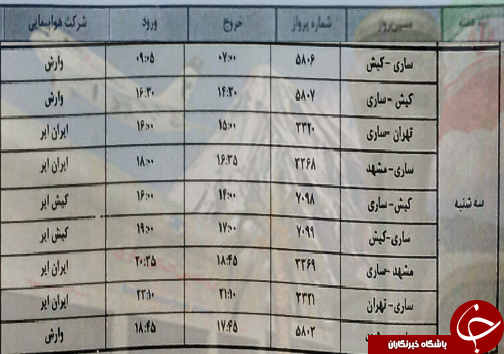 هفته مسیرپرواز شماره پرواز خروج ورود شرکت هواپیمایی
ساری-کیش ۵۸۰۶ ۰۷:۰۰ ۰۹:۰۵ وارش
کیش-ساری ۵۸۰۷ ۱۴:۳۰ ۱۶:۳۰ وارش
تهران-ساری ۳۳۲۰ ۱۵:۰۰ ۱۶:۰۰ ایران ایر
ساری-مشهد ۳۲۶۸ ۱۶:۳۵ ۱۸:۰۰ ایران ایر
سه شنبه کیش-ساری ۷۰۹۸ ۱۴:۰۰ ۱۶:۰۰ کیش ایر
ساری-کیش ۷۰۹۹ ۱۷:۰۰ ۱۹:۰۰ کیش ایر
مشهد-ساری ۳۲۶۹ ۱۸:۴۵ ۲۰:۳۵ ایران ایر
ساری-تهران ۳۳۲۱ ۲۱:۱۰ ۲۳:۱۰ ایران ایر
۵۸۰۲ ۱۷:۴۵ ۱۸:۴۵ وارش
باشگاه خبرنگاران